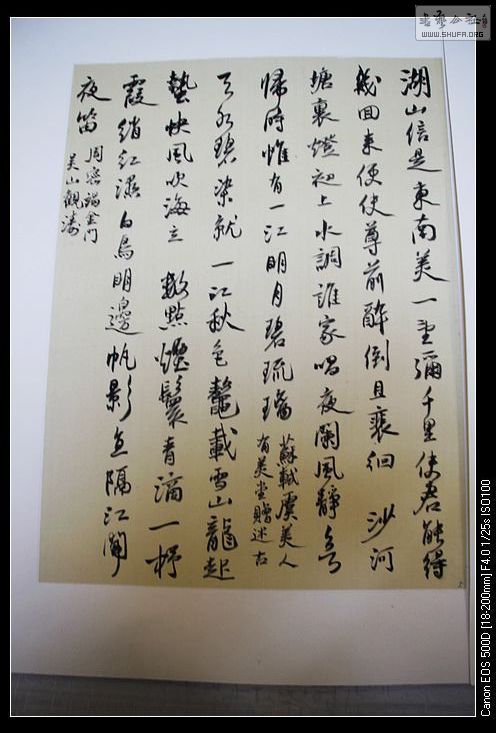 书艺公社
WWW.SHUFA.ORG
湖山信是東南美一望彌千里使君能得
幾回来便使尊前醉倒且裴徊 沙河
塘裏燈初上水調誰家唱夜闌風靜欲
歸時惟有一江明月碧琉璃
蘇軾虞美人
有美堂贈述古
天水碧染就一江秋色鼇載雪山龍起
蟄快風吹海立 數點煙鬟青滴一杼
霞綃紅濕白鳥明邊帆影直隔江聞
夜笛
周密謁金門
吴山觀濤
Canon EOS 500D [18-200mm] F4.0 1/25s ISO100